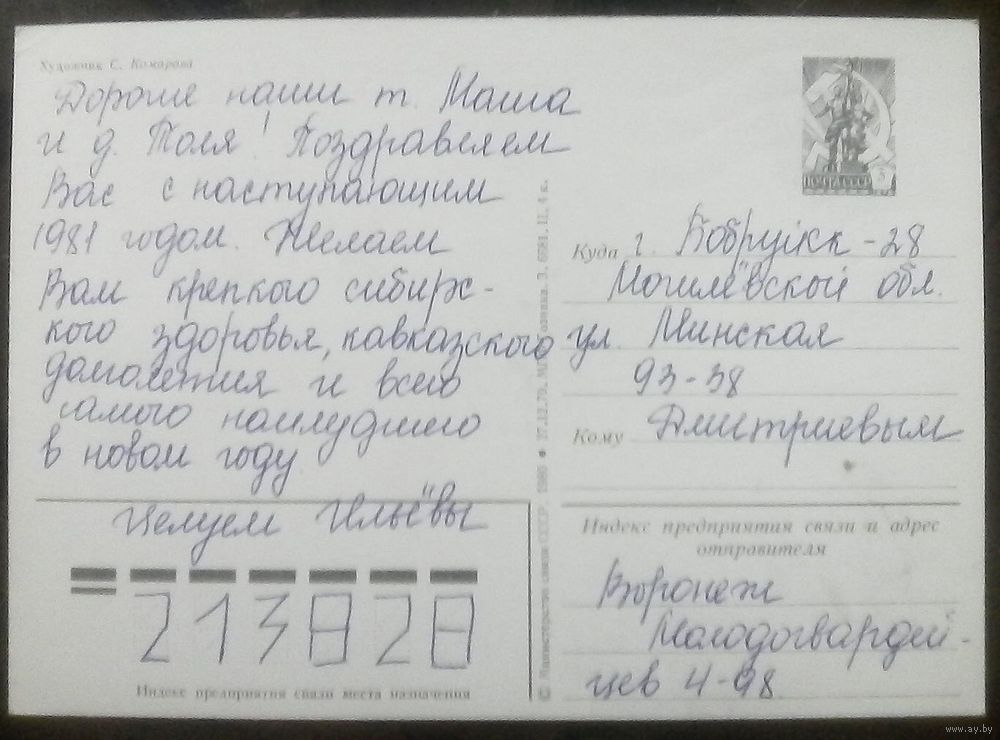 Художник С. Комарова
Дорогие наши т. Маша
и д. Толя! Поздравляем
Вас с наступающим
1981 годом. Желаем
Вам крепкого сибирс-
кого здоровья, кавказского
долголетия и всего
самого наилудшего
в новом году
Целуем Ильёвы
213828
Индекс предприятия связи места назначения
© Министерство связи СССР. 1980 • 27.12.79.
ПОЧТА СССР 3
Куда г. Бобруйск-28
Могилёвской обл.
ул. Минская
93-38
Кому Дмитриевым
Индекс предприятия связи и адрес
отправителя
Воронеж
Молодогвардей-
цев 4-98
www.ay.by